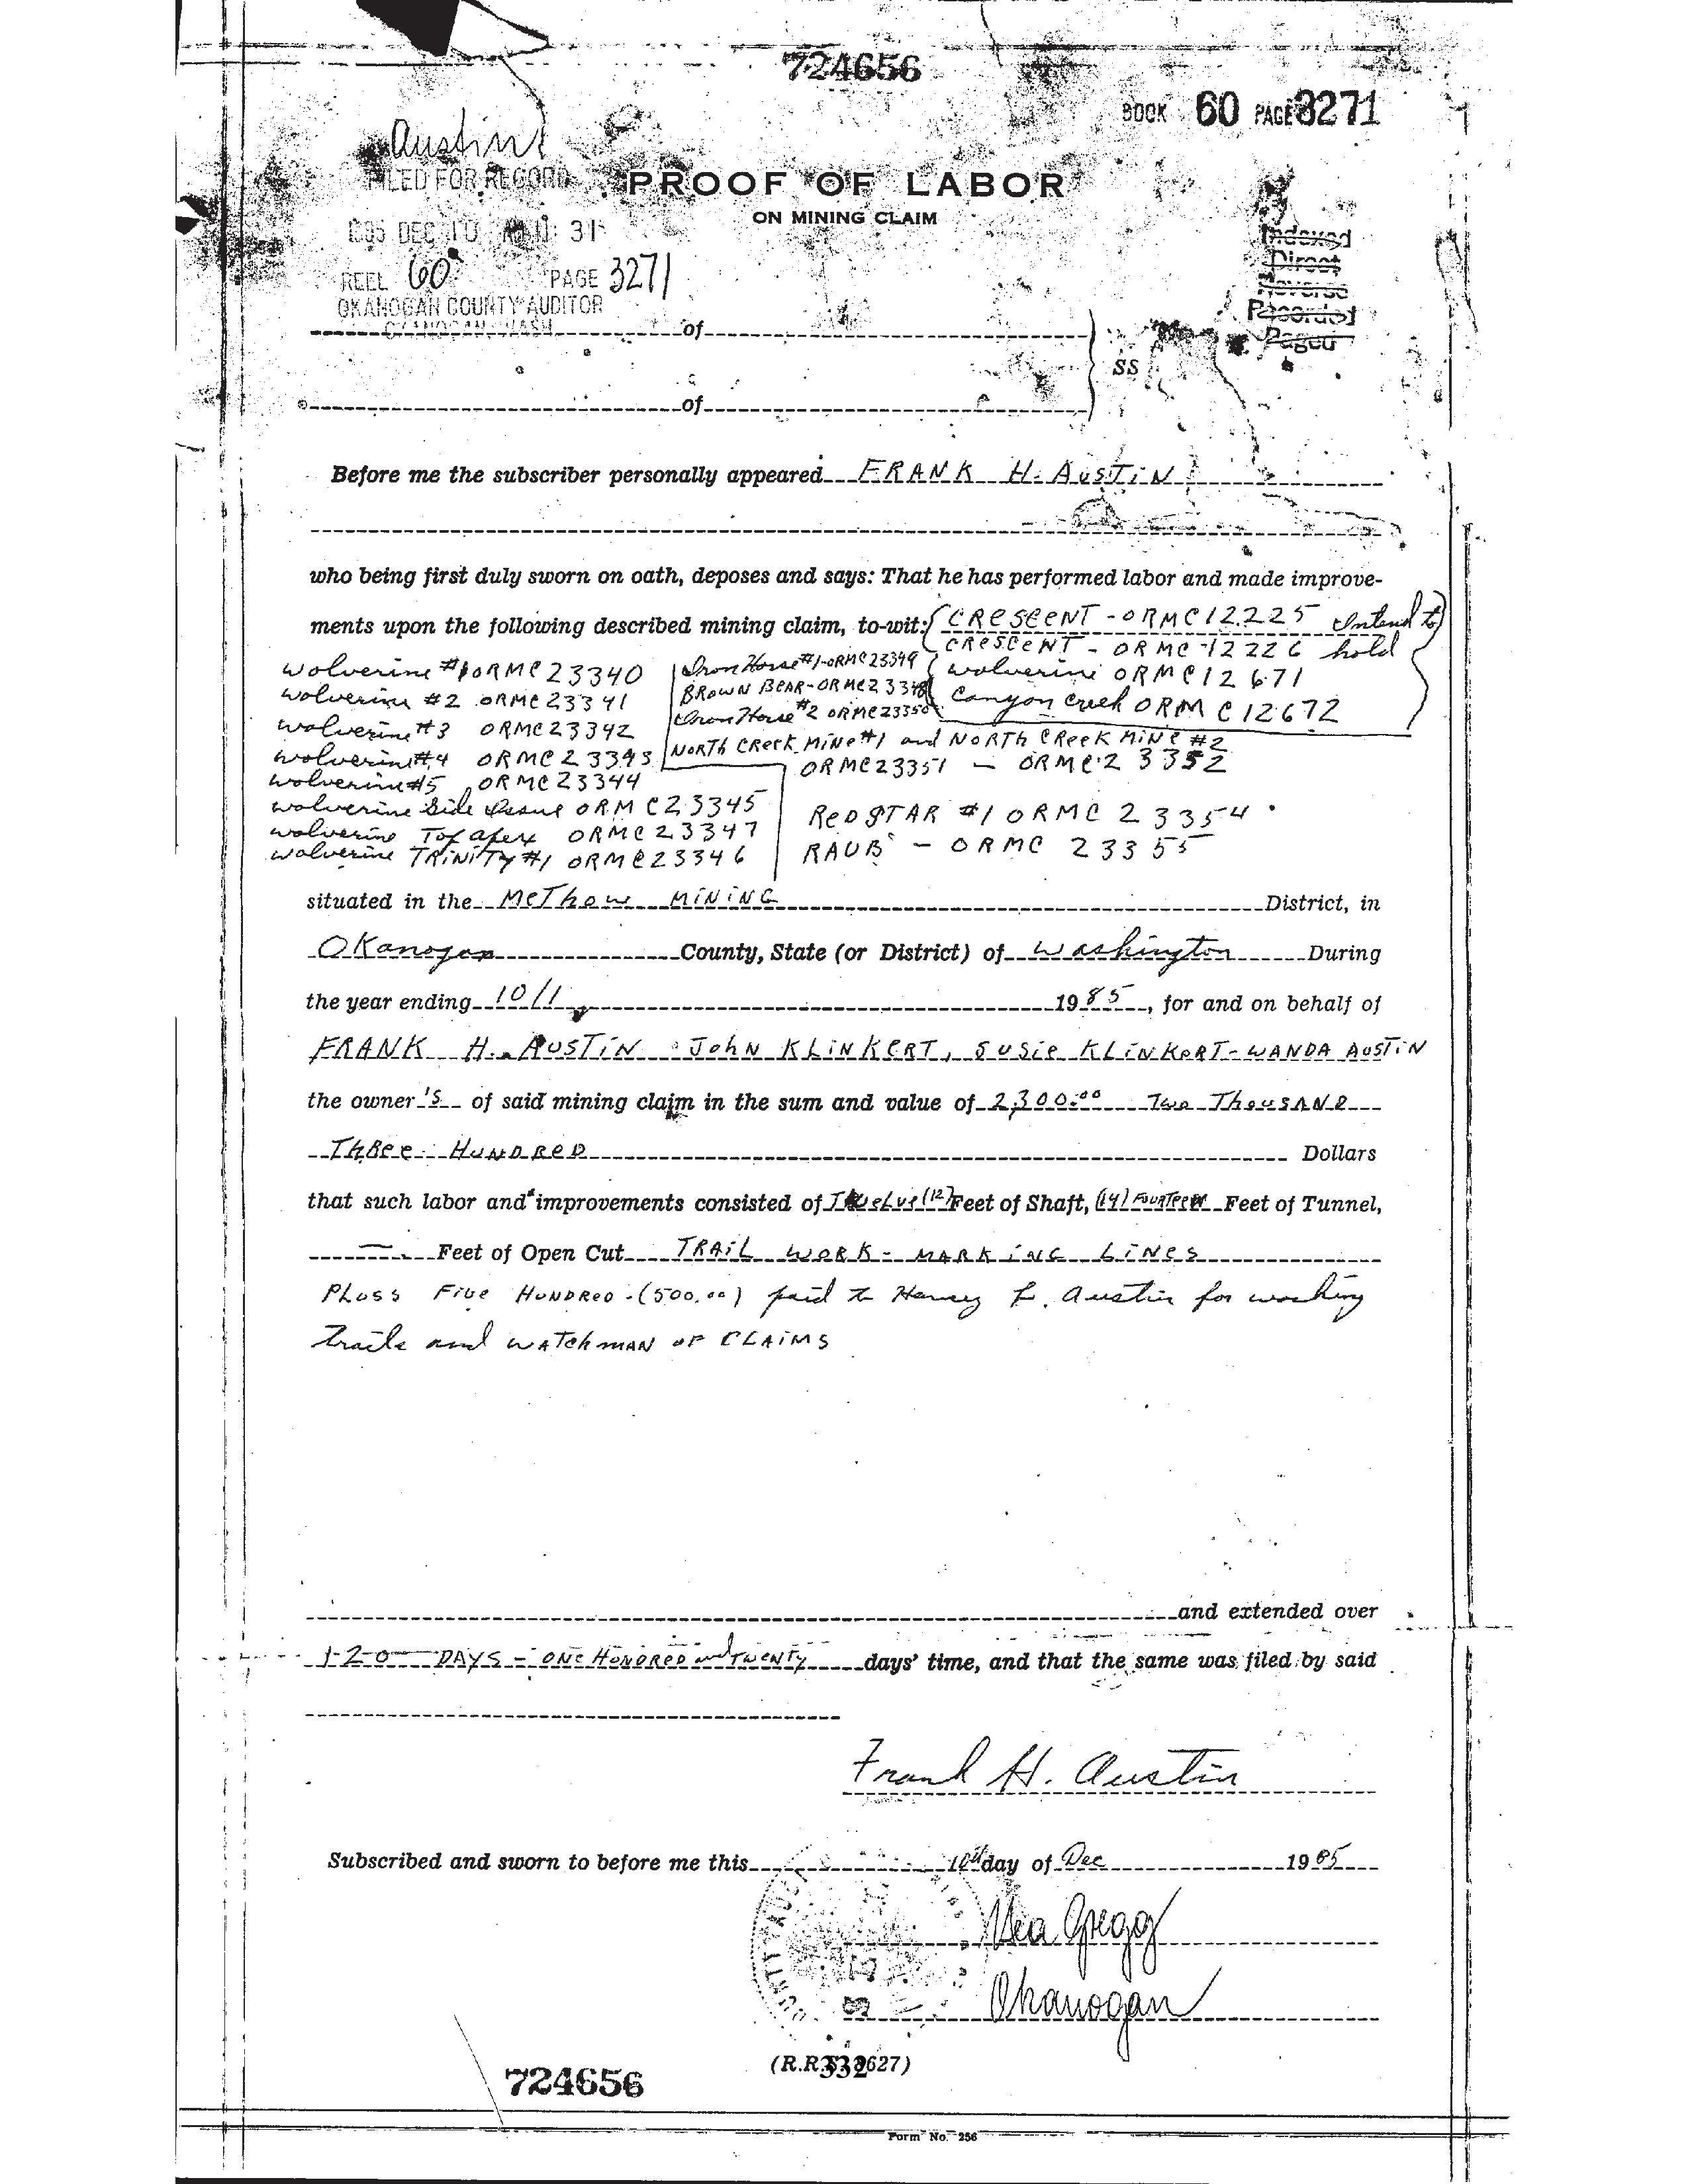 724656
BOOK 60 PAGE 3271
Austin
FILED FOR RECORD
PROOF OF LABOR
ON MINING CLAIM
DEC 10 31
REEL 60 PAGE 3271
OKANOGAN COUNTY AUDITOR
OKANOGAN, WASH
Indexed
Direct
Reverse
Recorded
Paged
of
SS
of
Before me the subscriber personally appeared FRANK H. AUSTIN
who being first duly sworn on oath, deposes and says: That he has performed labor and made improve-
ments upon the following described mining claim, to-wit: CRESCENT - ORMC 12225 Intend to
CRESCENT - ORMC 12226 hold
wolverine ORMC 12671
Canyon Creek ORMC 12672
wolverine #1 ORMC 23340
wolverine #2 ORMC 23341
wolverine #3 ORMC 23342
wolverine #4 ORMC 23343
wolverine #5 ORMC 23344
wolverine Side ORMC 23345
wolverine ORMC 23347
wolverine TRINITY #1 ORMC 23346
Iron Horse #1-ORMC 23349
BROWN BEAR-ORMC 23348
Iron Horse #2 ORMC 23350
NORTH CREEK MINE #1 and NORTH CREEK MINE #2
ORMC 23351 - ORMC 23352
RED STAR #1 ORMC 23354
RAUB - ORMC 23355
situated in the METHOW MINING District, in
Okanogan County, State (or District) of Washington During
the year ending 10/1 1985, for and on behalf of
FRANK H. AUSTIN - JOHN KLINKERT, SUSIE KLINKERT - WANDA AUSTIN
the owner's of said mining claim in the sum and value of 2,300.00 Two THOUSAND
THREE HUNDRED Dollars
that such labor and improvements consisted of TWELVE (12) Feet of Shaft, (14) FOURTEEN Feet of Tunnel,
— Feet of Open Cut TRAIL WORK - MARKING LINES
PLUSS FIVE HUNDRED - (500.00) paid to Harvey L. Austin for working
trails and WATCHMAN OF CLAIMS
and extended over
120 DAYS - ONE HUNDRED and TWENTY days' time, and that the same was filed by said
Frank H. Austin
Subscribed and sworn to before me this 10th day of Dec 1985
Vea Gregg
Okanogan
(R.R.S. 8627)
332
724656
Form No. 256